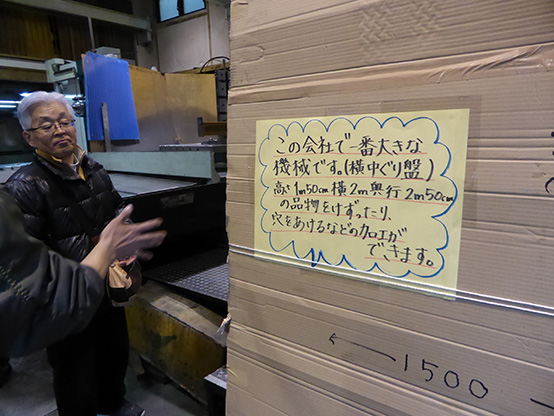 この会社で一番大きな
機械です。(横中ぐり盤)
高さ1m50cm横2m奥行2m50cm
の品物をけずったり、
穴をあけるなどの加工が
できます。
← 1500